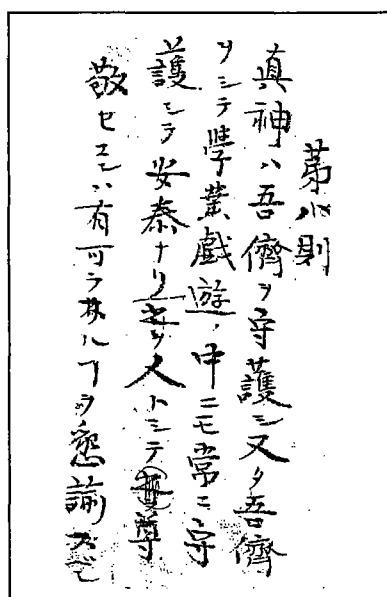 第八則
真神ハ吾儕ヲ守護シ又タ吾儕
ヲシテ學業戲遊ノ中ニモ常ニ守
護シテ安泰ナリ之ヲ人トシテ尊
敬セスンハ有可ラサルヿヲ懇諭スベシ